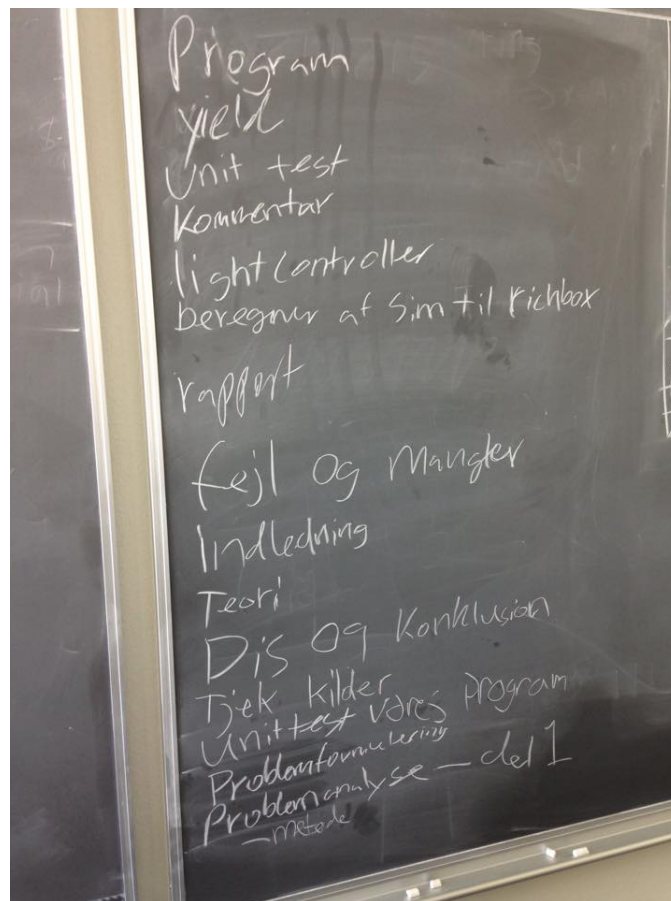 Program
yield
Unit test
Kommentar
lightController
beregner af sim til richbox
rapport
fejl og mangler
Indledning
Teori
Dis og Konklusion
Tjek kilder
Unittest vores program
Problemformulering
Problemanalyse — del 1
— metode